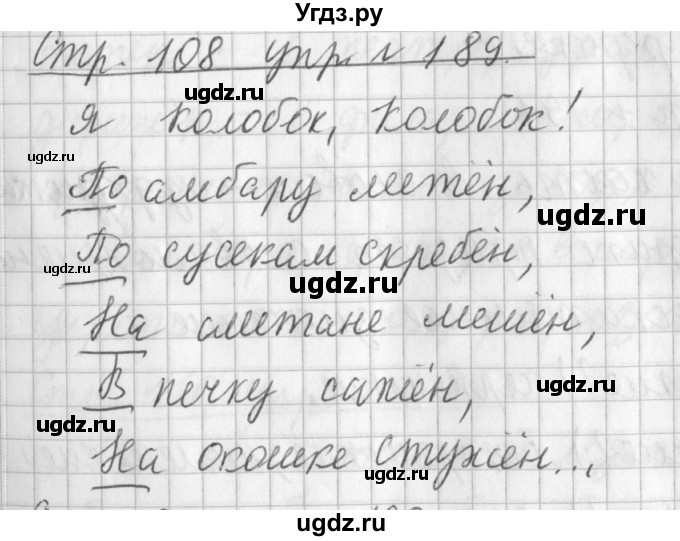 Угдз.ру
Стр. 108 упр. № 189.
ugdz.ru
Я колобок, колобок!
ugdz.ru
По амбару метён,
ugdz.ru
По сусекам скребён,
ugdz.ru
ugdz.ru
На сметане мешён,
ugdz.ru
В печку сажён,
ugdz.ru
На окошке стужён...
ugdz.ru
ugdz.ru